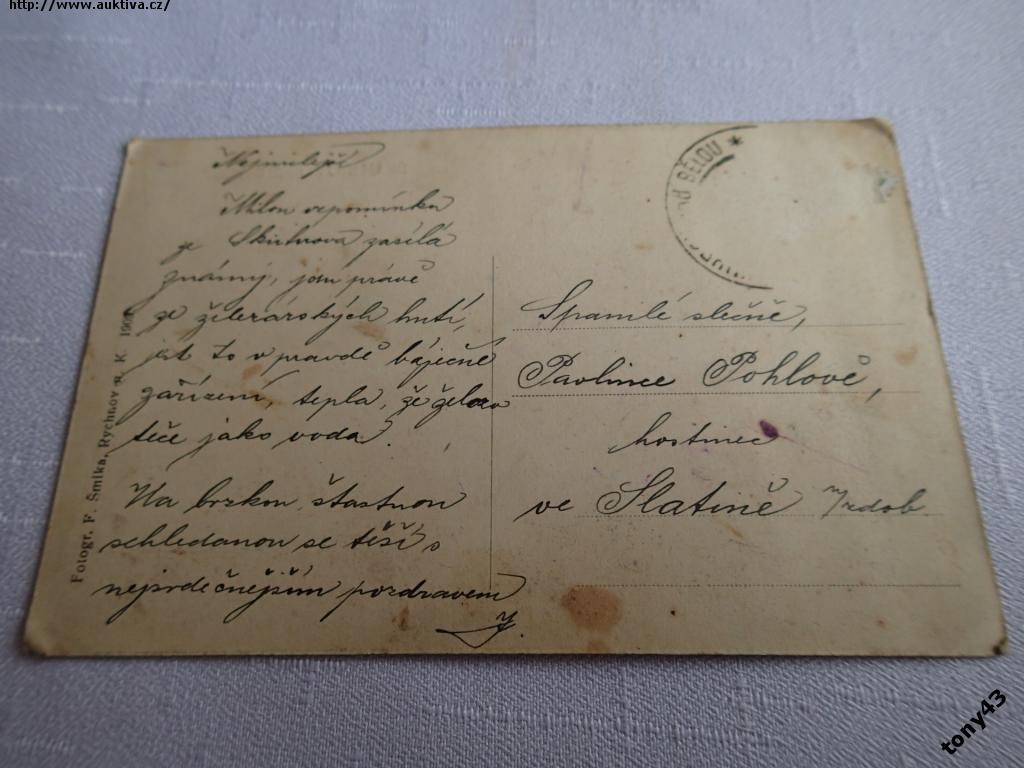 http://www.auktiva.cz/
Nejmilejší
Milou vzpomínku
ze Skuhrova zasílá
známý, jsem právě
ze železárských hutí,
jest to v pravdě báječné
zařízení, tepla, že železo
teče jako voda.
Na brzkou šťastnou
schledanou se těší s
nejsrdečnějším pozdravem
J.
Fotogr. F. Šmika, Rychnov n. K.
BĚLOU *
Spanilé slečně,
Pavlince Pohlově,
hostinec
ve Slatině n/zdob.
tony43